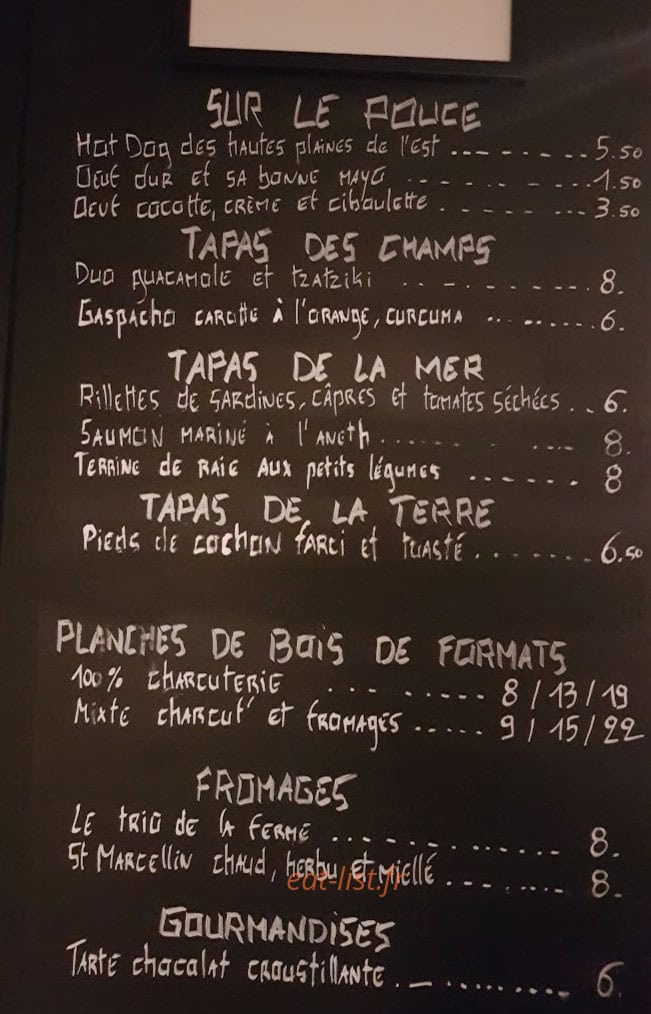 SUR LE POUCE
Hot Dog des hautes plaines de l'est ... - - . - - . . 5.50
Oeuf dur et sa bonne mayo - - - - - - - - - 1.50
Oeuf cocotte, crème et ciboulette . - - - - - - - 3.50
TAPAS DES CHAMPS
Duo guacamole et tzatziki . . - . - . - - - . 8.
Gaspacho carotte à l'orange, curcuma ... ....... 6.
TAPAS DE LA MER
Rillettes de sardines, câpres et tomates séchées . . 6.
Saumon mariné à l'aneth...... .... 8.
Terrine de raie aux petits légumes ....... 8
TAPAS DE LA TERRE
Pieds de cochon farci et toasté........ 6.50
PLANCHES DE BOIS DE FORMATS
100% charcuterie ... ...... 8 / 13 / 19
Mixte charcut' et fromages ...... 9 / 15 / 22
FROMAGES
Le trio de la ferme ............... 8.
St Marcellin chaud, herbu et miellé.......... 8.
eat-list.fr
GOURMANDISES
Tarte chocolat croustillante........... 6.